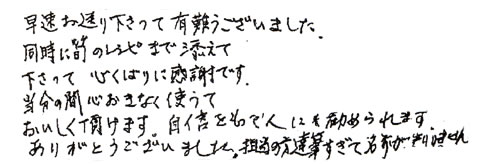 早速お送り下さって有難うございました。
同時に のレシピまで添えて
下さって 心くばりに感謝です。
当分の間心おきなく使うて
おいしく頂けます。自信をもって人にも勧められます。
ありがとうございました。担当の方達筆すぎて名前が判りません